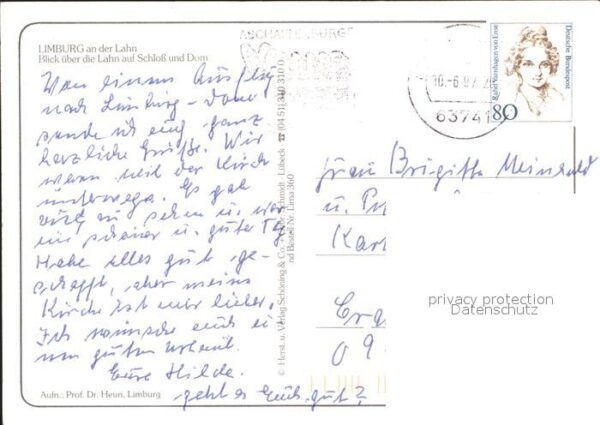 LIMBURG an der Lahn
Blick über die Lahn auf Schloß und Dom
Von einem Ausflug
nach Limburg - Dom
sende ich euch ganz
herzliche Grüße. Wir
waren mit der Kirche
unterwegs. Es gab
viel zu sehen u. war
ein schöner u. guter Tg
Habe alles gut ge-
schafft, aber meine
Kirche ist mir lieber.
Ich wünsche euch ei
nen guten Urlaub.
Eure Hilde.
geht es Euch gut?
Aufn.: Prof. Dr. Heun, Limburg
© Herst. u. Verlag Schöning & Co. + Schmidt · Lübeck ☎ (04 51) 3 10 31 0
nd Bestell-Nr. Limsa 360
ASCHAFFENBURG
10.-6.97
63741
Rahel Varnhagen von Ense
Deutsche Bundespost
80
Frau Brigitta Meinhold
u.
Kar
09
privacy protection
Datenschutz